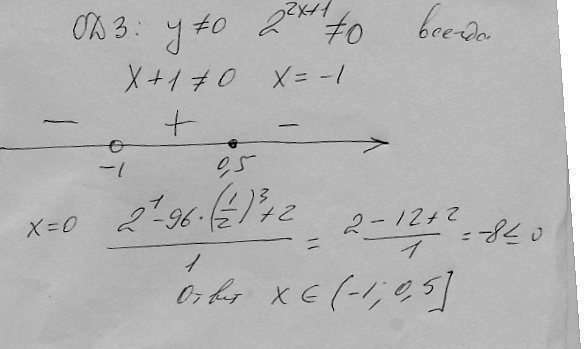 ОДЗ: y ≠ 0 2^{2x+1} ≠ 0 всегда
x + 1 ≠ 0 x = -1
− + −
-1 0,5
x = 0 \frac{2^1 - 96 \cdot (\frac{1}{2})^3 + 2}{1} = \frac{2 - 12 + 2}{1} = -8 ≤ 0
Ответ x ∈ (-1; 0,5]